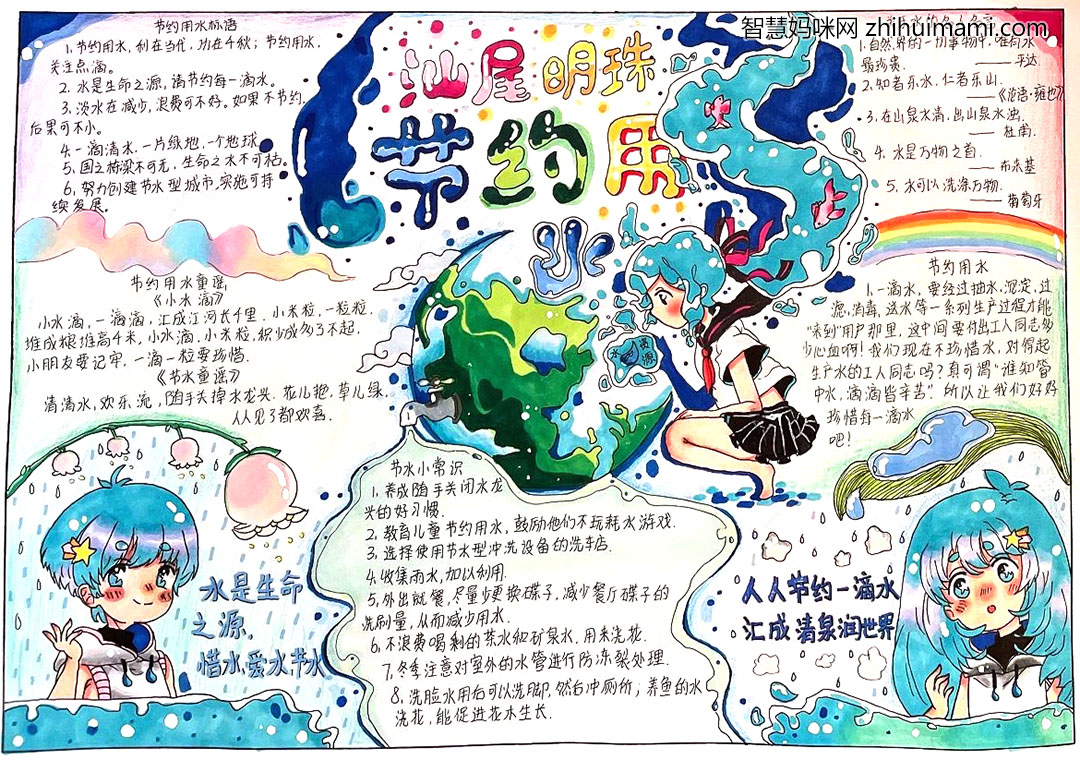 智慧妈咪网 zhihuimami.com
汕尾明珠
节约用
水
节约用水标语
1.节约用水,利在当代,功在千秋;节约用水,
关注点滴。
2.水是生命之源,请节约每一滴水。
3.淡水在减少,浪费可不好。如果不节约,
后果可不小。
4.一滴清水,一片绿地,一个地球。
5.国之栋梁不可无,生命之水不可枯。
6.努力创建节水型城市,实施可持
续发展。
1.自然界的一切事物中,唯有水
最珍贵。
2.知者乐水,仁者乐山。
——《论语·雍也》
3.在山泉水清,出山泉水浊。
——杜甫
4.水是万物之首。
5.水可以洗涤万物。
——葡萄牙
节约用水童谣
《小水滴》
小水滴,一滴滴,汇成江河长千里。小米粒,一粒粒,
堆成粮堆高千米,小水滴,小米粒,积少成多了不起,
小朋友要记牢,一滴一粒要珍惜。
《节水童谣》
清清水,欢乐流,随手关掉水龙头。花儿艳,草儿绿,
人人见了都欢喜。
节约用水
1.一滴水,要经过抽水,沉淀,过
滤,消毒,送水等一系列生产过程才能
“来到”用户那里,这中间要付出工人同志多
少心血啊!我们现在不珍惜水,对得起
生产水的工人同志吗?真可谓“谁知管
中水,滴滴皆辛苦”。所以让我们好好
珍惜每一滴水
吧!
节水小常识
1.养成随手关闭水龙
头的好习惯。
2.教育儿童节约用水,鼓励他们不玩耗水游戏.
3.选择使用节水型冲洗设备的洗车店.
4.收集雨水,加以利用.
5.外出就餐,尽量少更换碟子,减少餐厅碟子的
洗刷量,从而减少用水.
6.不浪费喝剩的茶水和矿泉水,用来浇花.
7.冬季注意对室外的水管进行防冻裂处理.
8.洗脸水用后可以洗脚,然后冲厕所;养鱼的水
浇花,能促进花木生长.
水是生命
之源,
惜水,爱水节水
人人节约一滴水
汇成清泉润世界